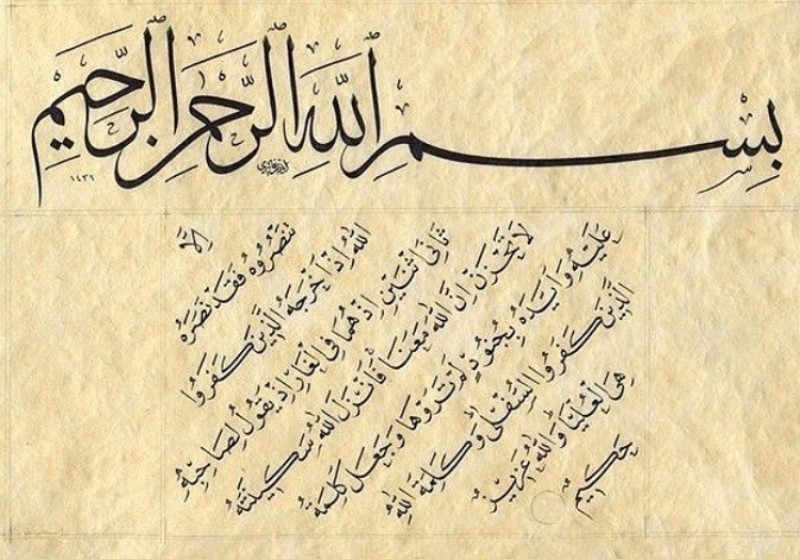 بِسْمِ اللّٰهِ الرَّحْمٰنِ الرَّحِيمِ
١٤٣١
اِلَّا
تَنْصُرُوهُ فَقَدْ نَصَرَهُ
اللّٰهُ اِذْ اَخْرَجَهُ الَّذِينَ كَفَرُوا
ثَانِيَ اثْنَيْنِ اِذْ هُمَا فِي الْغَارِ اِذْ يَقُولُ لِصَاحِبِهِ
لَا تَحْزَنْ اِنَّ اللّٰهَ مَعَنَا فَاَنْزَلَ اللّٰهُ سَكِينَتَهُ
عَلَيْهِ وَاَيَّدَهُ بِجُنُودٍ لَمْ تَرَوْهَا وَجَعَلَ كَلِمَةَ
الَّذِينَ كَفَرُوا السُّفْلٰى وَكَلِمَةُ اللّٰهِ
هِيَ الْعُلْيَا وَاللّٰهُ عَزِيزٌ
حَكِيمٌ